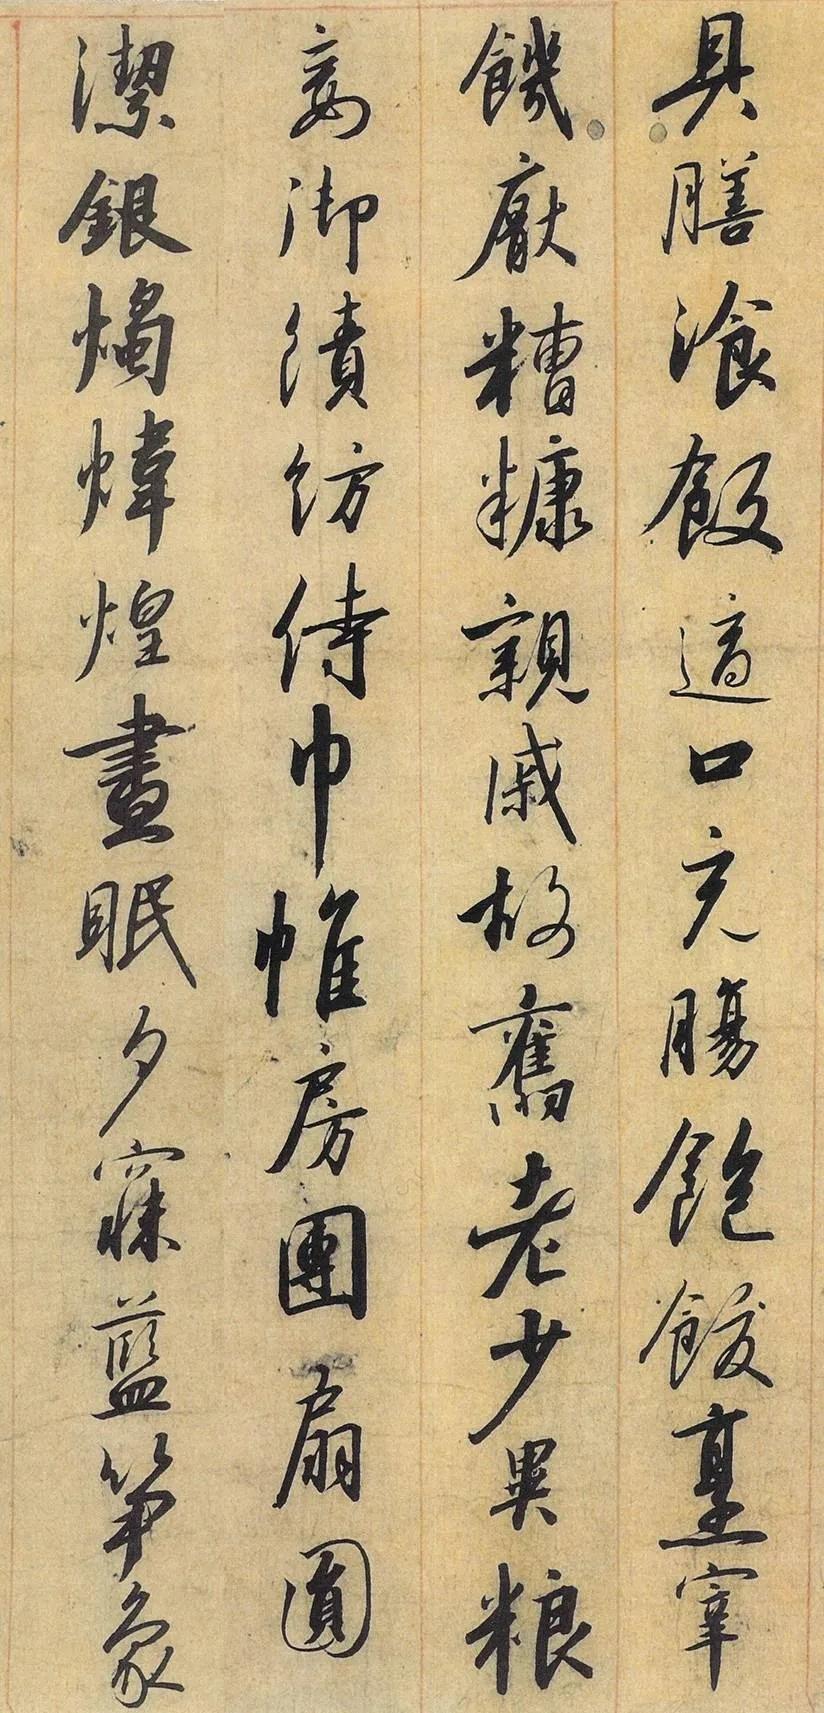 具膳湌飯適口充腸飽飫享宰
飢厭糟糠親戚故舊老少異粮
妾御績紡侍巾帷房團扇圓
潔銀燭煒煌晝眠夕寐藍笋象